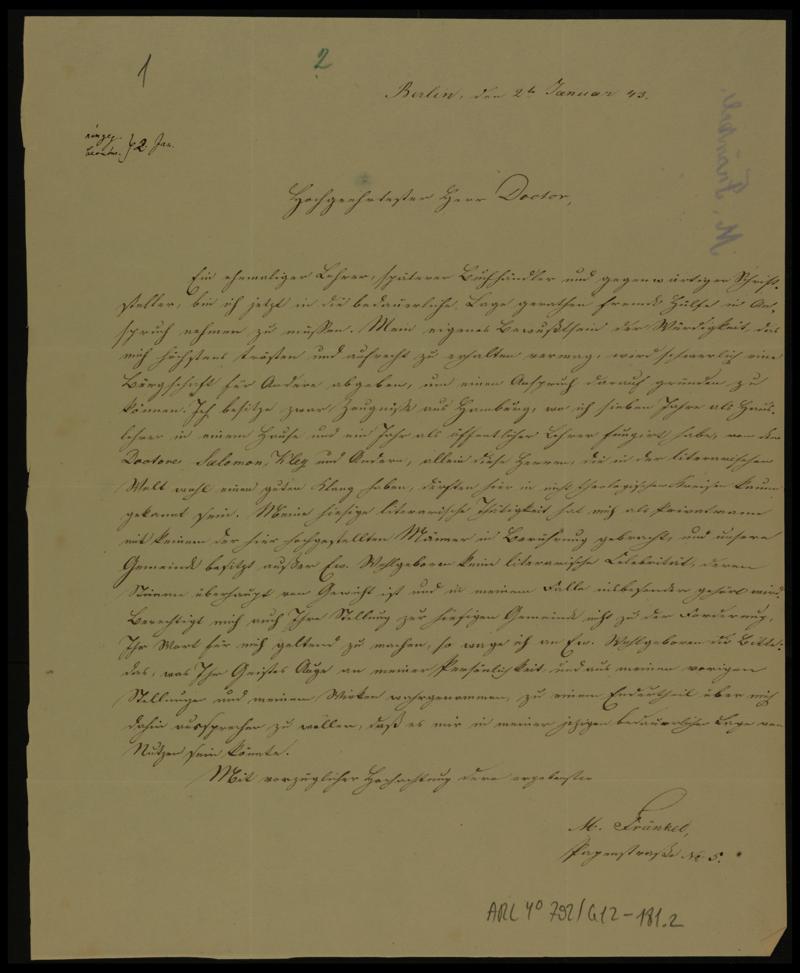 1
2
Berlin, den 2t Januar 43.
eingeg.
beantw. } 2 Jan.
M. Fränkel.
Hochgeehrtester Herr Doctor,
Ein ehemaliger Lehrer, späterer Buchhändler und gegenwärtiger Schrift-
steller, bin ich jetzt in die bedauerliche Lage gerathen fremde Hülfe in An-
spruch nehmen zu müssen. Mein eigenes Bewußtsein der Würdigkeit, das
mich höchstens trösten und aufrecht zu erhalten vermag, wird schwerlich eine
Bürgschaft für Andere abgeben, um einen Anspruch darauf gründen zu
können. Ich besitze zwar Zeugnisse aus Hamburg, wo ich sieben Jahre als Haus-
lehrer in einem Hause und ein Jahr als öffentlicher Lehrer fungirt habe, von den
Doctoren Salomon, Kley und Andern, allein diese Herren, die in der literarischen
Welt wohl einen guten Klang haben, dürften hier in nicht theologischen Kreisen kaum
gekannt sein. Meine hiesige literarische Thätigkeit hat mich als Privatmann
mit keinem der hier hochgestellten Männer in Berührung gebracht, und unsere
Gemeinde besitzt außer Ew. Wohlgeboren keine literarische Celebrität, deren
Stimme überhaupt von Gewicht ist und in meinem Falle insbesondere gehört wird.
Berechtigt mich auch Ihre Stellung zur hiesigen Gemeinde nicht zu der Forderung,
Ihr Wort für mich geltend zu machen, so wage ich an Ew. Wohlgeboren die Bitte:
das, was Ihr Geistes Auge an meiner Persönlichkeit und aus meinen vorigen
Stellungen und meinem Wirken wahrgenommen, zu einem Endurtheil über mich
dahin aussprechen zu wollen, daß es mir in meiner jetzigen bedauerlichen Lage von
Nutzen sein könnte.
Mit vorzüglicher Hochachtung dero ergebenster
M. Fränkel,
Papenstraße No 5.
ARC 4° 792/G12-181.2